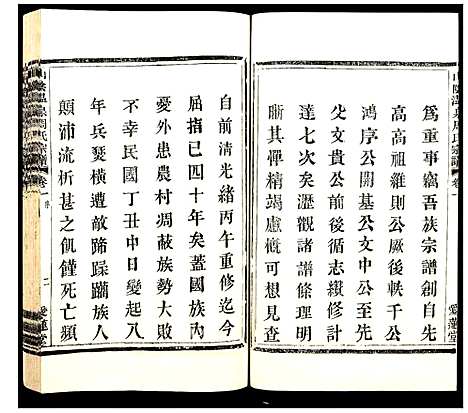 山陰溫泉周氏宗譜 卷一
愛蓮堂
為重事竊吾族宗譜創自先
高高祖維則公厥後軼千公
鴻序公開基公文中公至先
父文貴公前後循志纘修計
達七次矣瀝觀諸譜條理明
晰其憚精竭慮概可想見查
自前清光緒丙午重修迄今
屈指已四十年矣蓋國族內
憂外患農村凋敝族勢大敗
不幸民國丁丑中日變起八
年兵燹橫遭敵蹄蹂躪族人
顛沛流析甚之飢饉死亡頻
山陰溫泉周氏宗譜 卷一 序 二 愛蓮堂